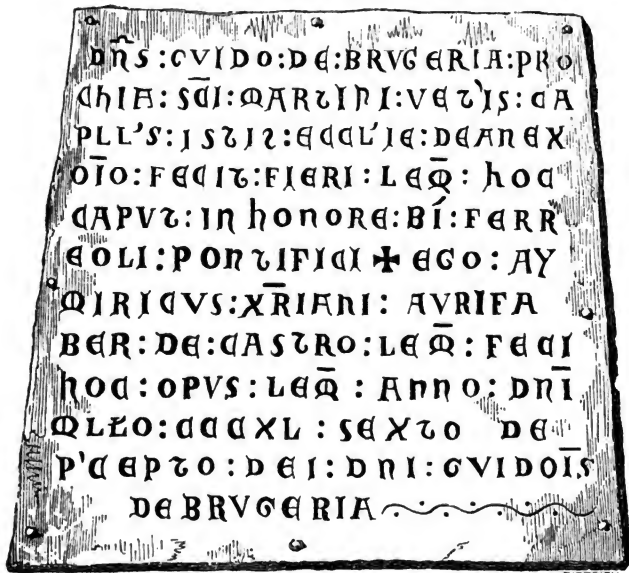 DÑS : GVIDO : DE : BRVGERIA : PRO
CHIA : SC̄I : MARTINI : VET'IS : CA
PLL'S : ISTIZ : ECCL'IE : DEANEX
OĪO : FECIT : FIERI : LEM̄ : HOC
CAPVT : IN HONORE : BÍ : FERR
EOLI : PONTIFICI ✠ EGO : AY
MIRICVS : XR̄IANI : AVRIFA
BER : DE : CASTRO : LEM̄ : FECI
HOC : OPVS : LEM̄ : ANNO : DNĪ
MLŁO : CCCXL : SEXTO DE
P'CEPTO : DEI : DNI : GVIDOĪS
DE BRVGERIA